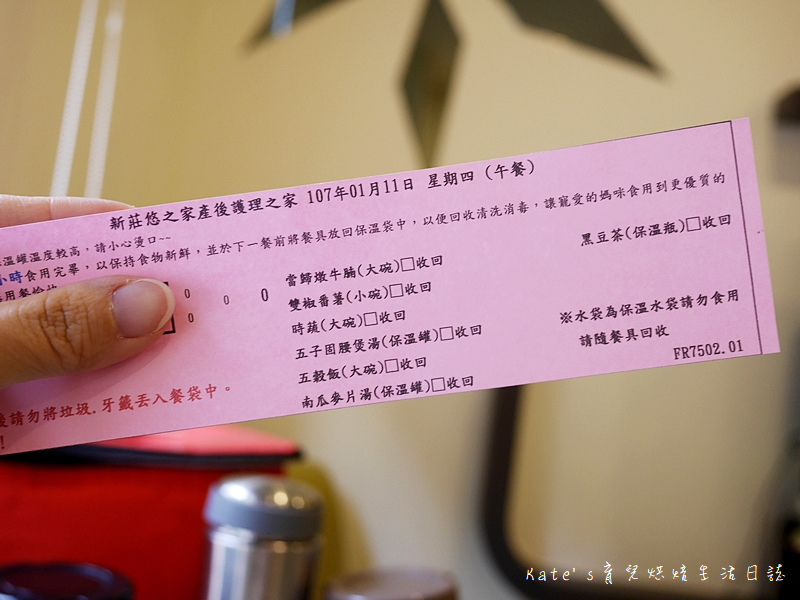 新莊悠之家產後護理之家 107年01月11日 星期四 (午餐)
溫罐溫度較高，請小心燙口~~
小時食用完畢，以保持食物新鮮，並於下一餐前將餐具放回保溫袋中，以便回收清洗消毒，讓寵愛的媽咪食用到更優質的
0 0 0
0 0
當歸燉牛腩(大碗)□收回
黑豆茶(保溫瓶)□收回
雙椒番薯(小碗)□收回
時蔬(大碗)□收回
五子固腰煲湯(保溫罐)□收回
五穀飯(大碗)□收回
南瓜麥片湯(保溫罐)□收回
※水袋為保溫水袋請勿食用
請隨餐具回收
FR7502.01
後請勿將垃圾.牙籤丟入餐袋中。
!
Kate's育兒烘焙生活日誌